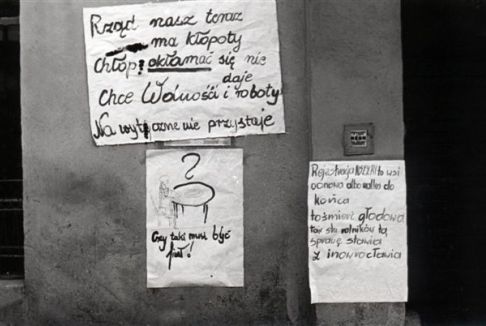 Rząd nasz teraz
ma kłopoty
Chłop? okłamać się nie
daje
Chce Wolności i roboty
Na wytyczne nie przystaje
?
Czy taki musi być
finał!
Rejestracja to wsi
odnowa albo walka do
końca
to śmierć głodowa
tak sta rolników tą
sprawę stawia
z inowrocławia